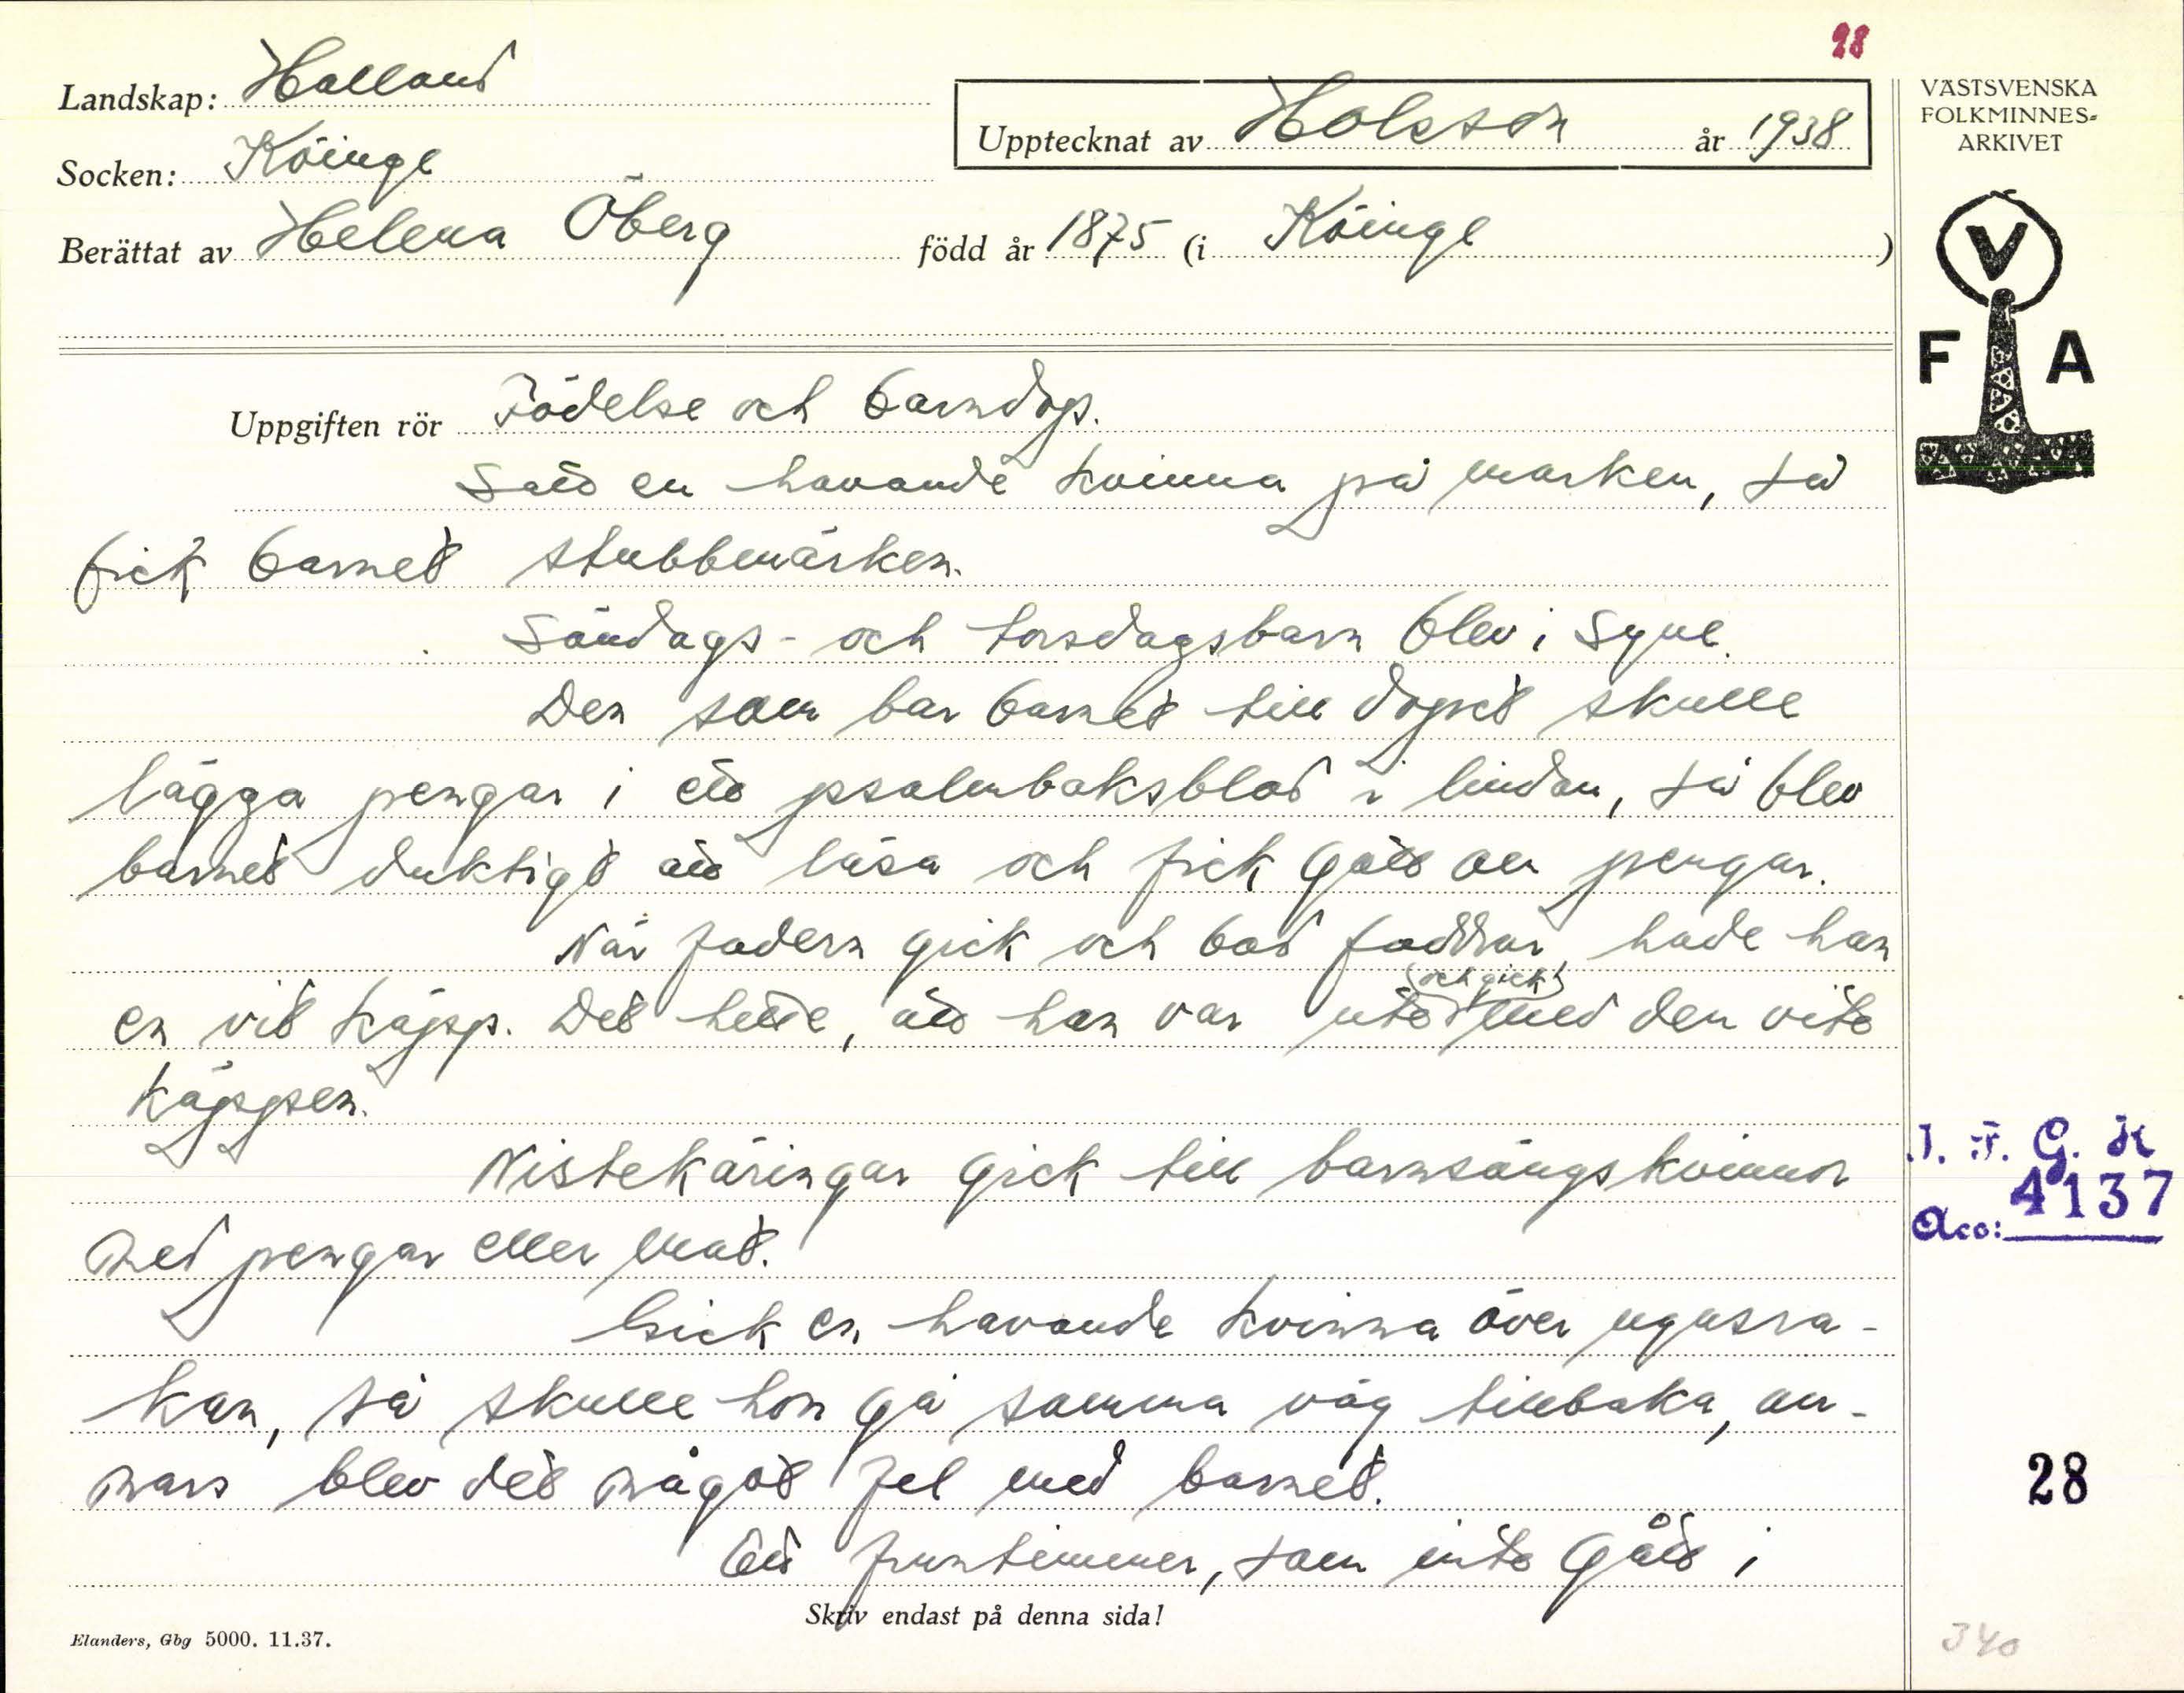 28
Landskap: Halland
Upptecknat av Holsson år 1938
VÄSTSVENSKA
FOLKMINNES-
ARKIVET
Socken: Köinge
Berättat av Helena Öberg född år 1875 (i Köinge )
V
F A
Uppgiften rör Födelse och barndop.
Satt en havande kvinna på marken, så
fick barnet stubbmärken.
Söndags- och torsdagsbarn blev i syne.
Den som bar barnet till dopet skulle
lägga pengar i ett psalmboksblad i lindan, så blev
barnet duktigt att läsa och fick gott om pengar.
När fadern gick och bad faddrar, hade han
en vit käpp. Det hette, att han var ute (och gick) med den vite
käppen.
Nistekäringar gick till barnsängskvinnor
med pengar eller mat.
Gick en havande kvinna över ugnsra-
kan, så skulle hon gå samma väg tillbaka, an-
nars blev det något fel med barnet.
Ett fruntimmer, som inte gått i
I. F. G. K
Acc: 4137
28
Skriv endast på denna sida!
Elanders, Gbg 5000. 11.37.
340